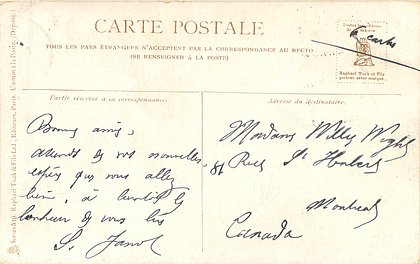 CARTE POSTALE
TOUS LES PAYS ÉTRANGERS N'ACCEPTENT PAS LA CORRESPONDANCE AU RECTO.
(SE RENSEIGNER À LA POSTE)
Raphael Tuck et Fils
Partie réservée à la correspondance.
Adresse du destinataire.
Bonnes amies,
attends de vos nouvelles,
espère que vous allez
bien, à bientôt le
bonheur de vous lire
Madame Willy
81 Rue St Hubert
Montreal
Canada